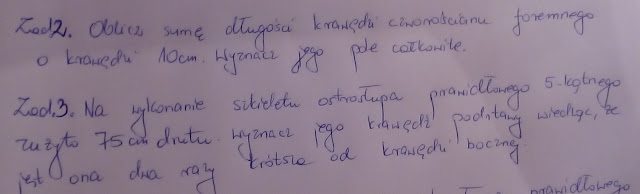 Zad2. Oblicz sumę długości krawędzi czworościanu foremnego
o krawędzi 10cm. Wyznacz jego pole całkowite.
Zad.3. Na wykonanie szkieletu ostrosłupa prawidłowego 5-kątnego
zużyto 75cm drutu. Wyznacz jego krawędź podstawy wiedząc, że
jest ona dwa razy krótsza od krawędzi bocznej.
prawidłowego